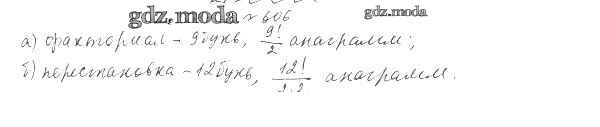 gdz.moda № 606 gdz.moda
а) факториал – 9 букв, 9!/2 анаграмм;
б) перестановка – 12 букв, 12!/2·2 анаграмм.